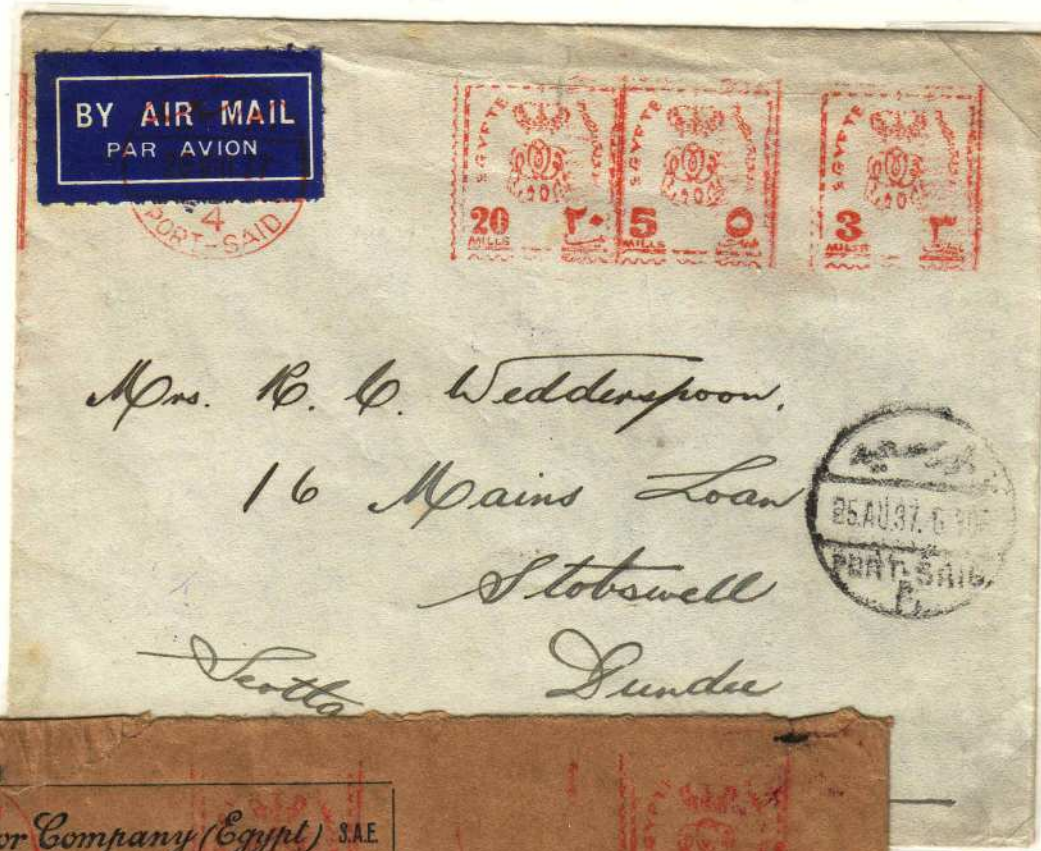 BY AIR MAIL
PAR AVION
4
PORT-SAID
EGYPTE
20 ٢٠
MILLS
EGYPTE
5 ٥
MILLS
EGYPTE
3 ٣
MILLS
Mrs. R. C. Wedderspoon.
16 Mains Loan
Stobswell
Dundee
Scotla
25.AU.37. 6
PORT-SAID
or Company (Egypt) S.A.E.